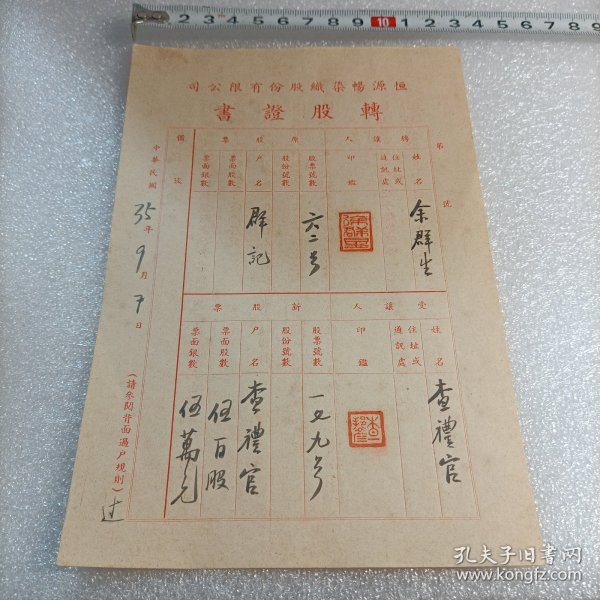 恒源暢染織股份有限公司
轉股證書
第 號
轉讓人
姓名
余群生
住址或通訊處
印鑑
原股票
股票號數
六二号
股份號數
戶名
群記
票面股數
票面銀數
受讓人
姓名
查禮官
住址或通訊處
印鑑
新股票
股票號數
一七九号
股份號數
戶名
查禮官
票面股數
伍百股
票面銀數
伍萬元
備註
中華民國35年9月7日
(請參閱背面過戶規則)
孔夫子旧书网
www.kongfz.com